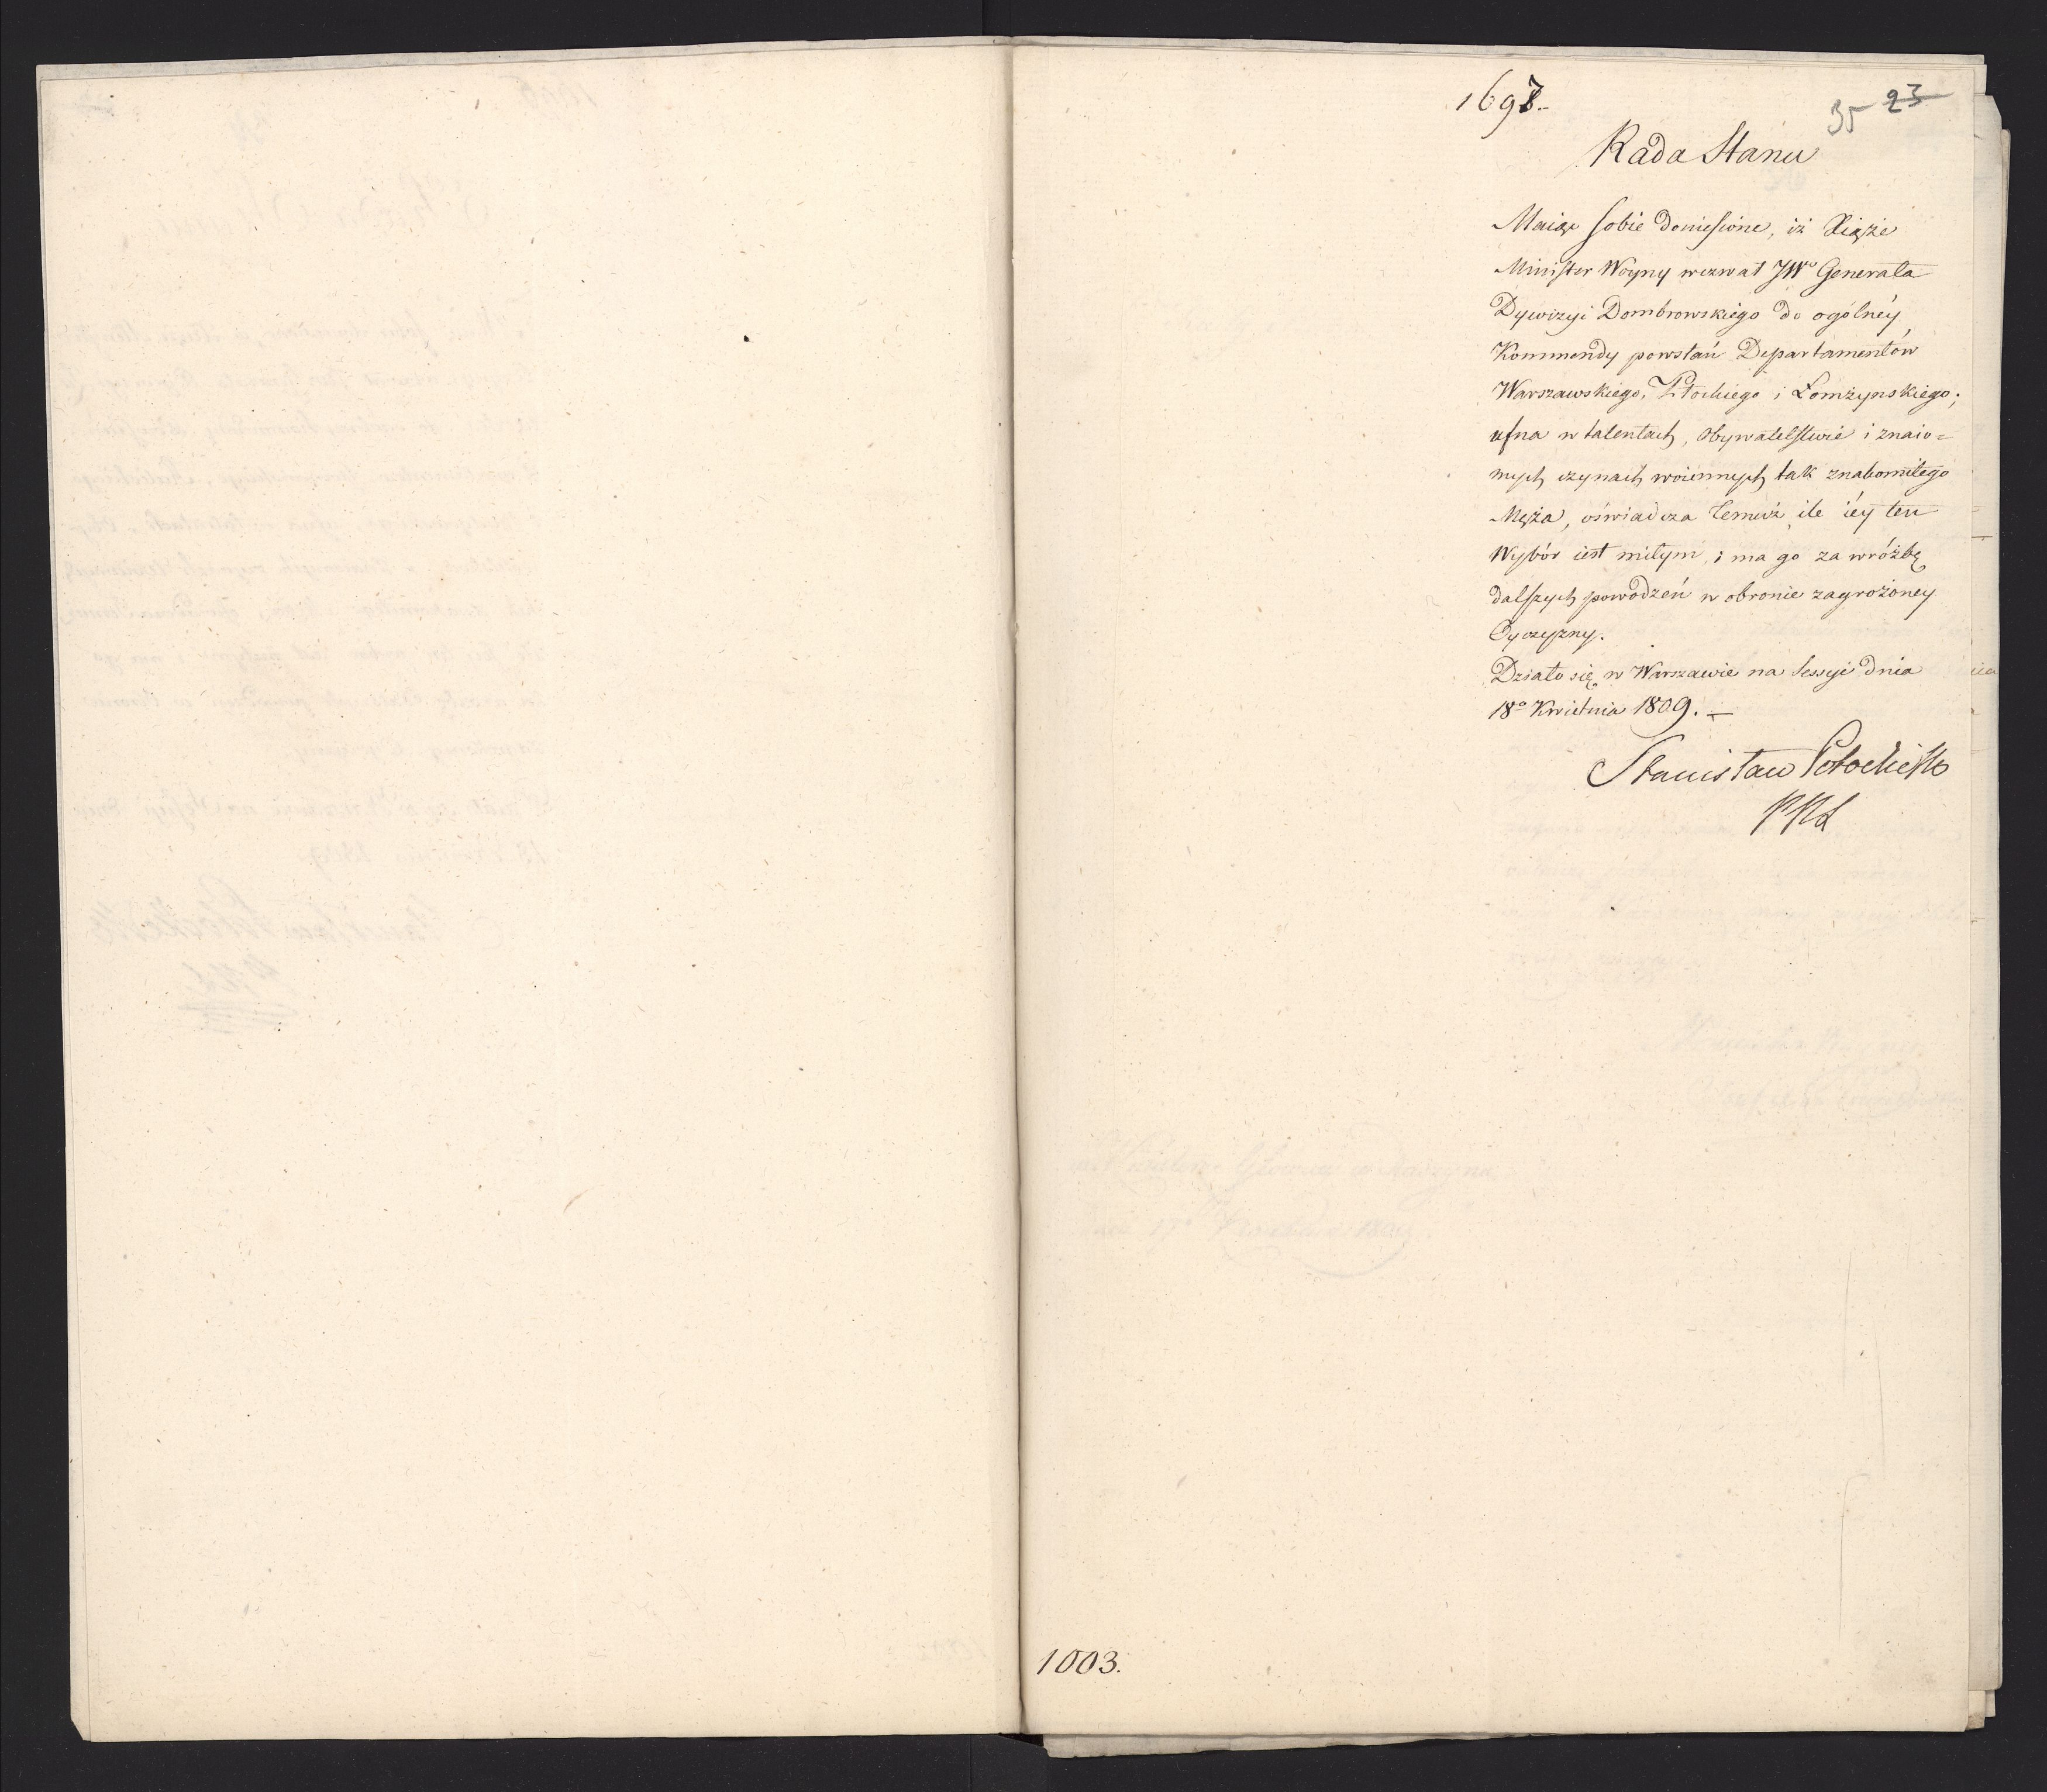 1697.
35 23
Rada Stanu
Maiąc sobie doniesione, iż Xiąże
Minister Woyny wezwał JWo Generała
Dywizyi Dombrowskiego do ogólnéy
Kommendy powstań Departamentów
Warszawskiego, Płockiego i Łomżynskiego;
ufna w talentach, Obywatelstwie i znaio=
mych czynach woiennych tak znakomitego
Męża, oświadcza Temuż ile iéy ten
Wybór iest miłym, i ma go za wróżbę
dalszych powodzeń w obronie zagrożoney
Oyczyzny.
Działo się w Warszawie na Sessyi dnia
18o Kwietnia 1809. —
Stanisław Potocki
1003.